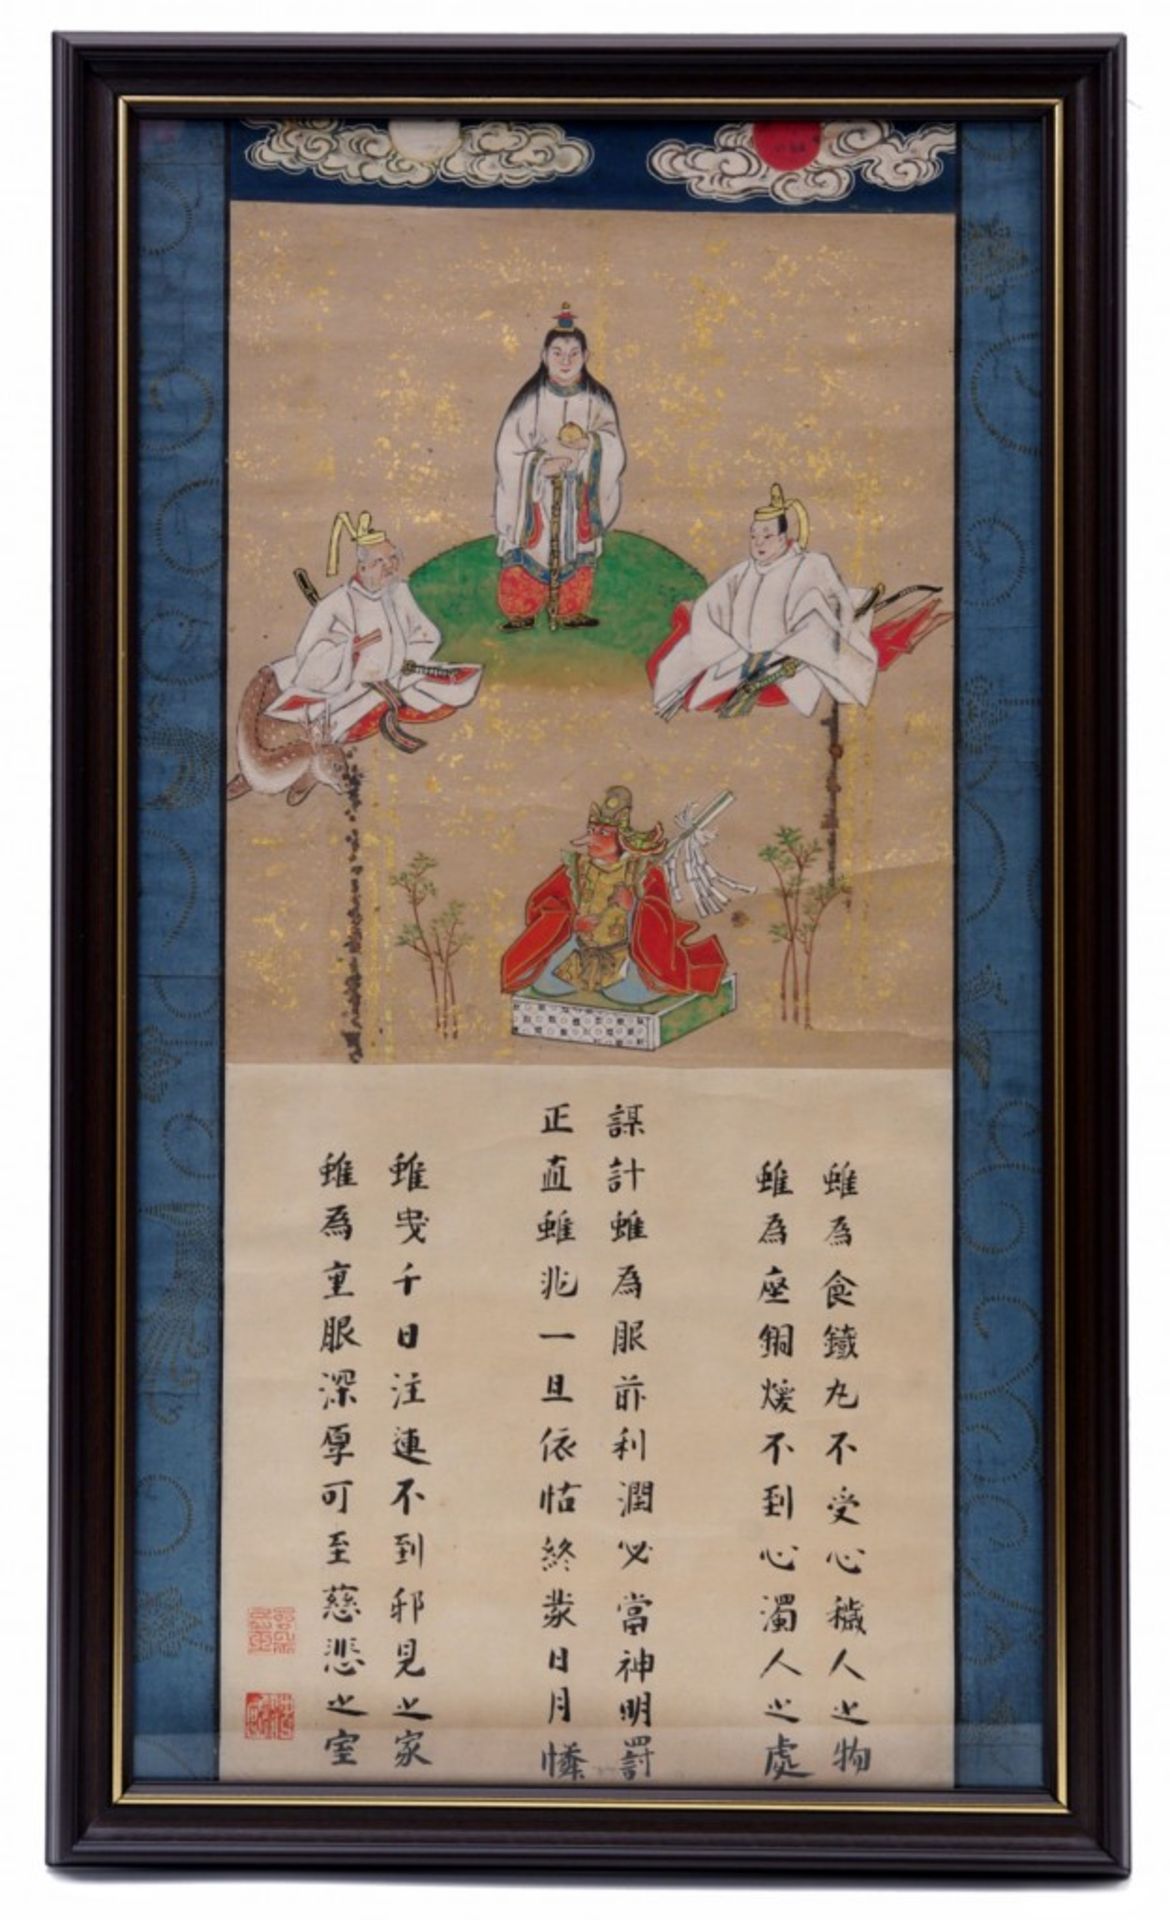 雖為食鐵丸不受心穢人之物
雖為座銅煖不到心濁人之處
謀計雖為眼前利潤必當神明罰
正直雖非一旦依怙終蒙日月憐
雖曳千日注連不到邪見之家
雖為重服深厚可至慈悲之室